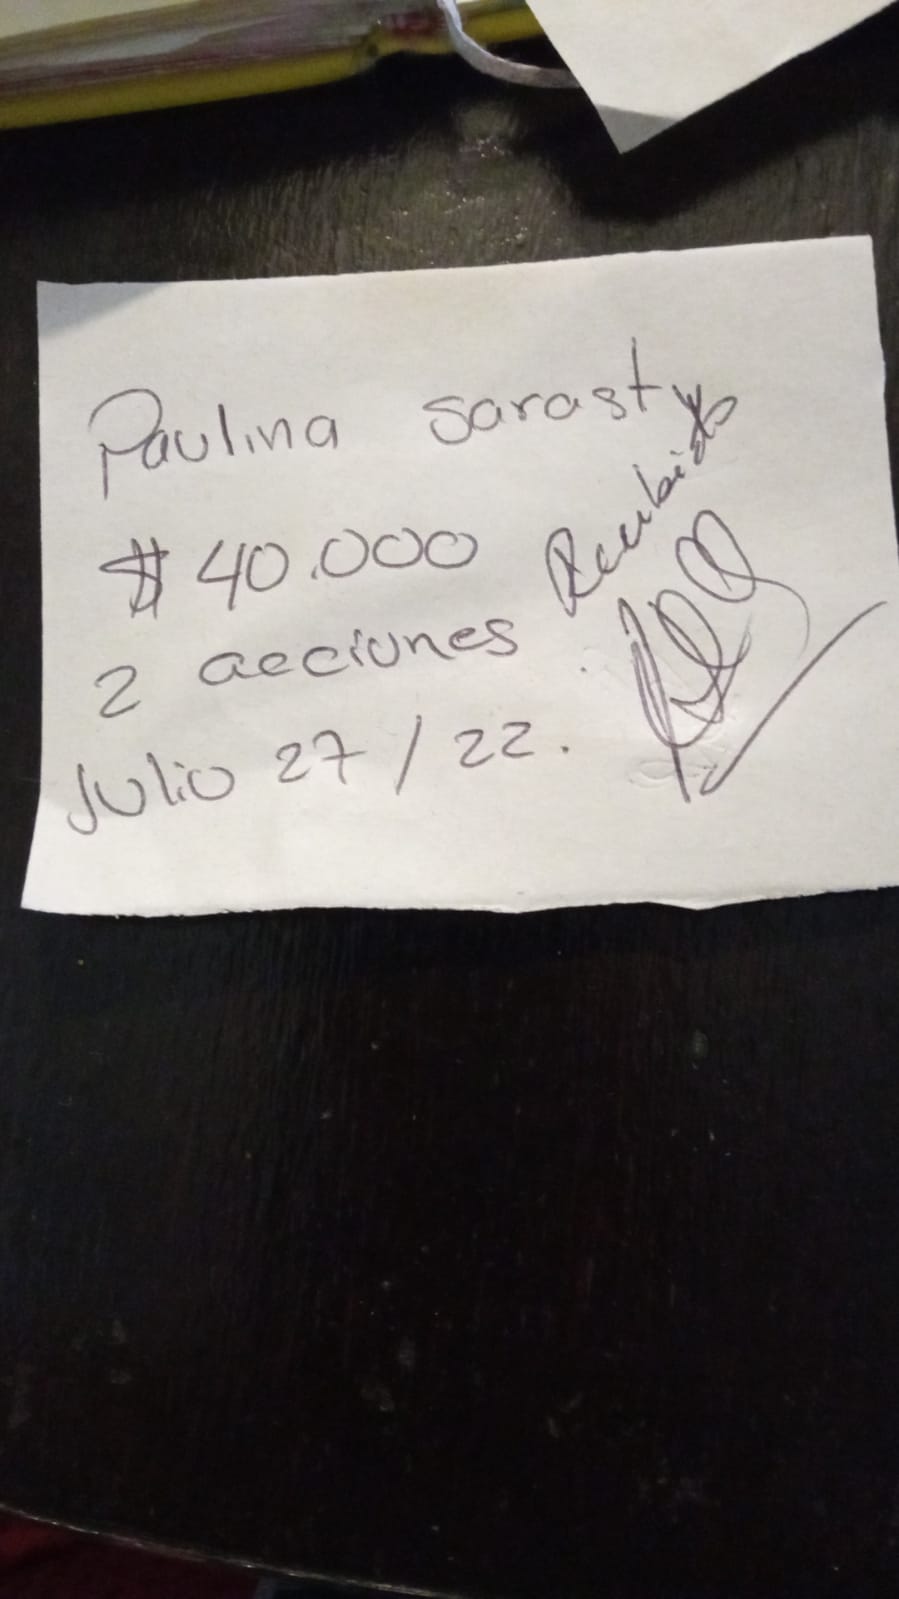 Paulina Sarasty
$ 40.000
2 acciones
Julio 27 / 22.
Recibido